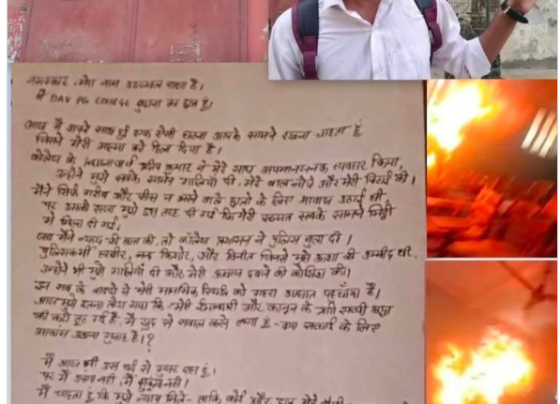 नमस्कार, मेरा नाम उज्जवल राणा है।
मैं DAV PG COLLEGE बुढ़ाना का छात्र हूँ।
आज मैं अपने साथ हुई एक ऐसी घटना आपके सामने रखना चाहता हूँ
जिसने मेरी आत्मा को हिला दिया है।
कॉलेज के प्रधानाचार्य प्रदीप कुमार ने मेरे साथ अपमानजनक व्यवहार किया,
उन्होंने मुझे सबके सामने गालियाँ दी, मेरे बाल नोचे और मेरी पिटाई की।
मैंने सिर्फ गरीब और फीस न भरने वाले छात्रों के लिए आवाज उठाई थी
पर उसकी सजा मुझे इस तरह दी गई कि मेरी इज्जत सबके सामने मिट्टी
में मिला दी गई।
जब मैंने न्याय की बात की, तो कॉलेज प्रशासन ने पुलिस बुला दी।
पुलिसकर्मी नन्द किशोर, और विनीत जिनसे मुझे रक्षा की उम्मीद थी,
उन्होंने भी मुझे गालियाँ दी और मेरी आवाज दबाने की कोशिश की।
इस सब के मेरी मानसिक स्थिति को गहरा आघात पहुँचाया है।
आज मुझे ऐसा लगा कि मेरी ईमानदारी और कानून के प्रति
की कहीं टूट गई है, मैं खुद से सवाल करने लगा हूँ - क्या सच्चाई के लिए
आवाज उठाना गुनाह है।?
मैं आज भी उस दर्द से गुजर रहा हूँ।
पर मैं डरा नहीं, मैं झुका नहीं।
मैं चाहता हूँ कि मुझे न्याय मिले - ताकि कोई और छात्र मेरे